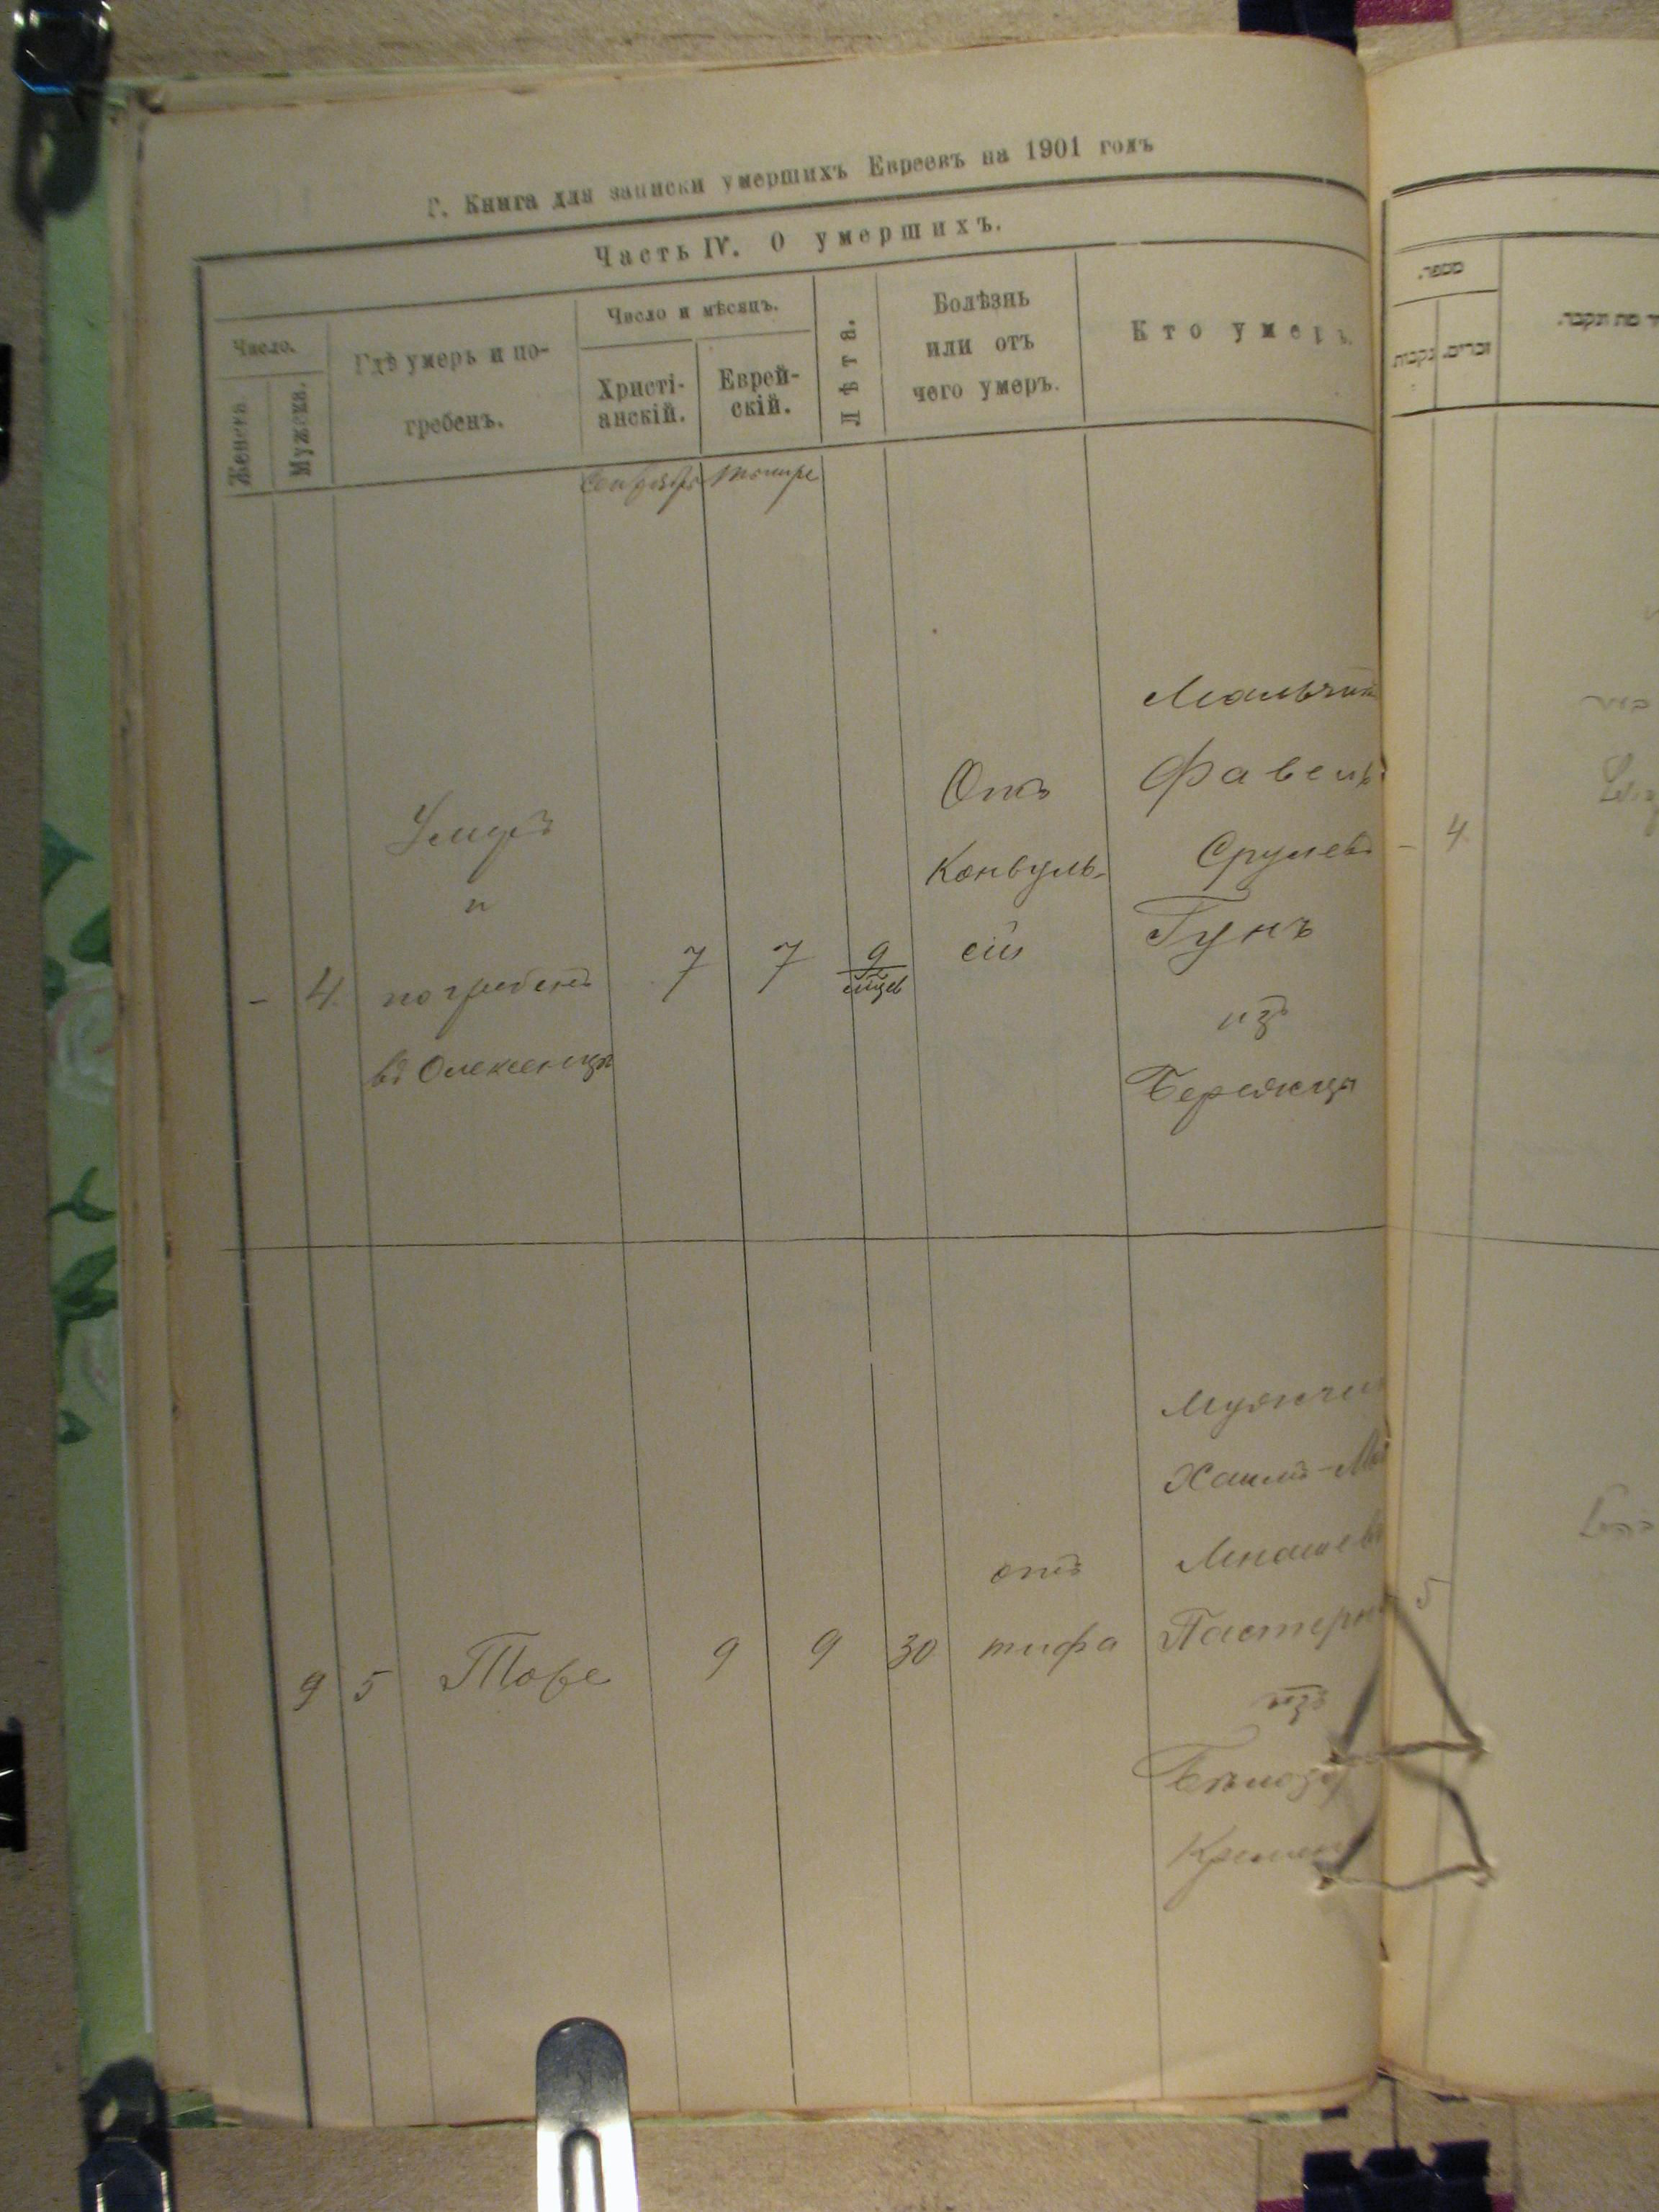 Г. Книга для записки умершихъ Евреевъ на 1901 годъ
Часть IV. О умершихъ.
Число.
Женска
Мужеска.
Гдѣ умеръ и по-
гребенъ.
Число и мѣсяцъ.
Христі-
анскій.
Еврей-
скій.
Лѣта.
Болѣзнь
или отъ
чего умеръ.
Кто умеръ.
Сентябрь
Тишре
- 4.
Умеръ
и
погребенъ
въ Олексенцы
7
7
9
мѣцев
Отъ
Конвуль-
сій
Мальчикъ
Фавель
Срулевъ
Гунъ
изъ
Бережцы
9 5
Тоже
9
9
30
отъ
тифа
Мужчин
Хаимъ-
Мнашевъ
Пастерн
изъ
Кремен
מספר.
זכרים.
נקבות
- 4.
5